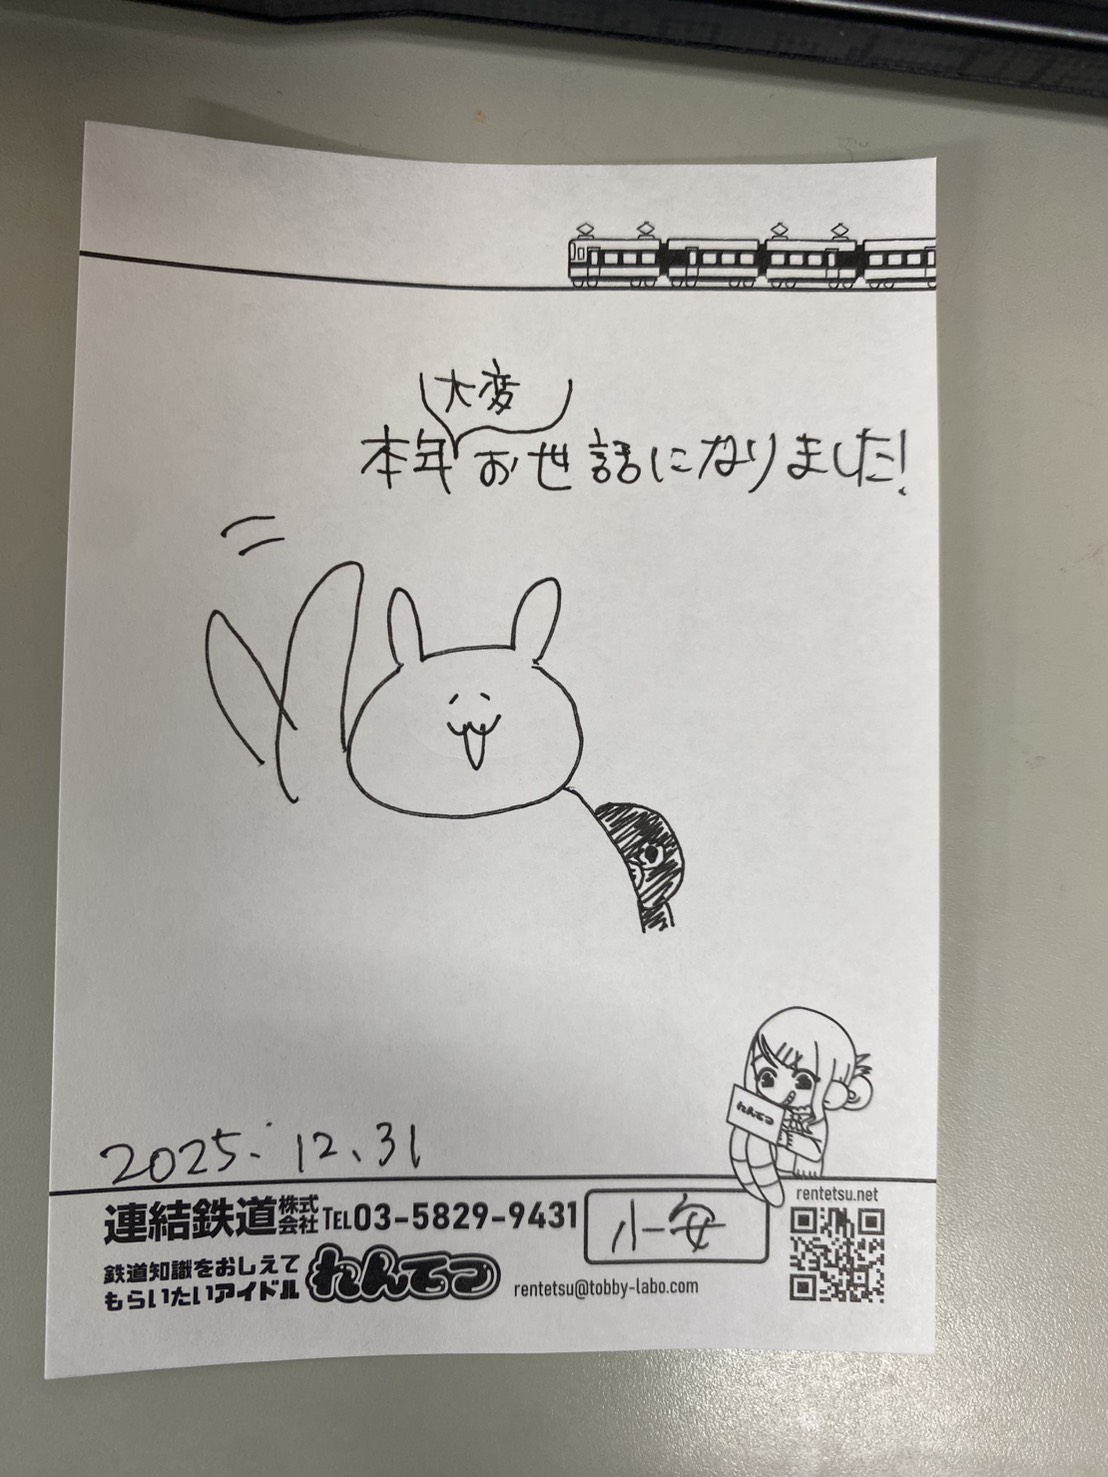 大変
本年お世話になりました!
れんてつ
2025.12.31
連結鉄道株式会社 TEL03-5829-9431
小安
rentetsu.net
鉄道知識をおしえて
もらいたいアイドル れんてつ
rentetsu@tobby-labo.com